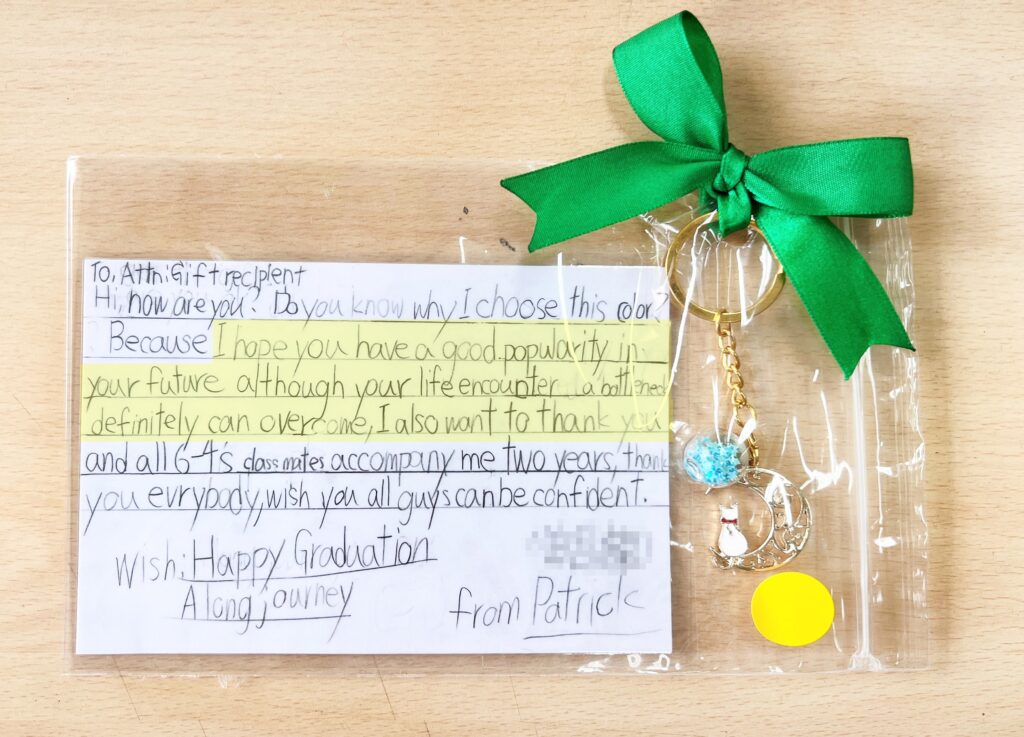 To, Attn: Gift recipient
Hi, how are you? Do you know why I choose this color?
Because I hope you have a good popularity in
your future although your life encounter a
definitely can overcome, I also want to thank you
and all 6-4's classmates accompany me two years, thank
you evrybody, wish you all guys can be confident.
Wish: Happy Graduation
A long journey
from Patrick